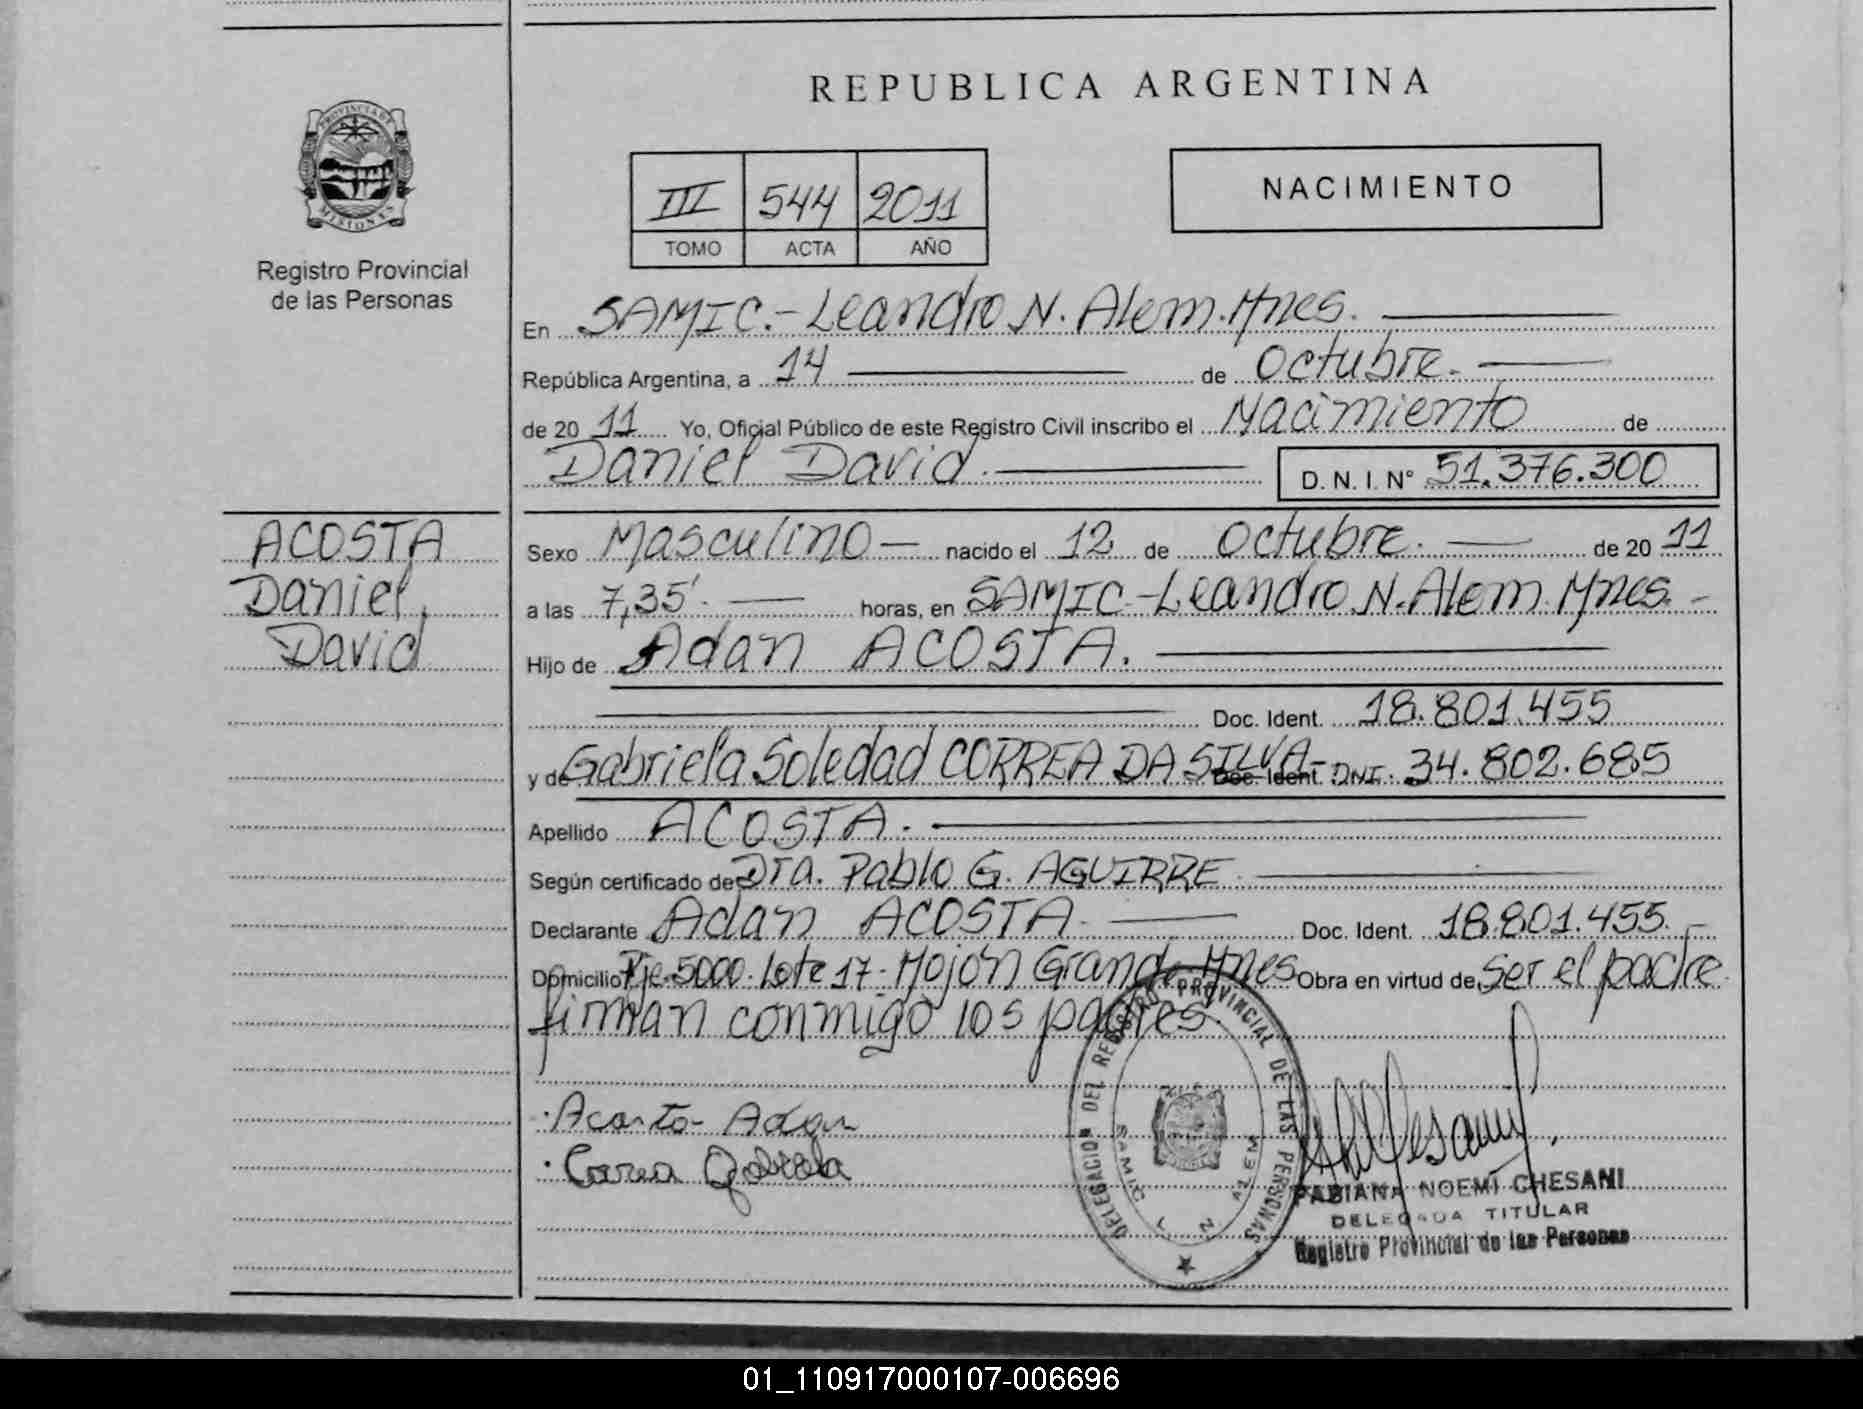 REPUBLICA ARGENTINA
PROVINCIA DE MISIONES
Registro Provincial
de las Personas
III 544 2011
TOMO ACTA AÑO
NACIMIENTO
En SAMIC.- Leandro N. Alem. Mnes.
República Argentina, a 14 de Octubre.
de 2011 Yo, Oficial Público de este Registro Civil inscribo el Nacimiento de
Daniel David. D.N.I. N° 51.376.300
ACOSTA
Daniel,
David
Sexo Masculino nacido el 12 de Octubre. de 2011
a las 7,35'. horas, en SAMIC-Leandro N. Alem. Mnes.
Hijo de Adan ACOSTA.
Doc. Ident. 18.801.455
y de Gabriela Soledad CORREA DA SILVA- Doc. Ident. DNI. 34.802.685
Apellido ACOSTA.
Según certificado de Dra. Pablo G. AGUIRRE
Declarante Adan ACOSTA. Doc. Ident. 18.801.455.
Domicilio Pje. 5000. Lote 17. Mojón Grande Mnes Obra en virtud de ser el padre.
firman conmigo los padres.
DELEGACION DEL REGISTRO PROVINCIAL DE LAS PERSONAS
SAMIC L. N. ALEM
. Acosta Adan
. Correa Gabriela
FABIANA NOEMI CHESANI
DELEGADA TITULAR
Registro Provincial de las Personas
01_110917000107-006696